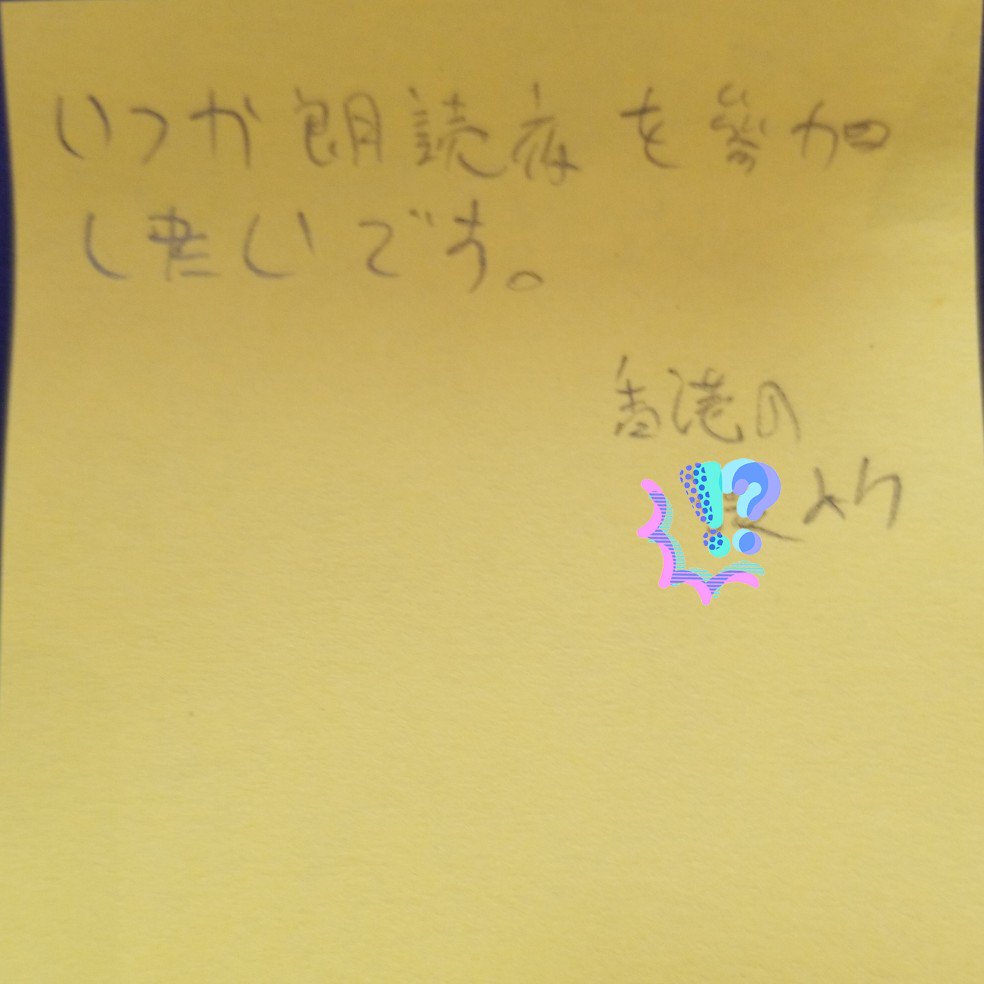 いつか朗読夜を参加
したいです。
香港の
!?より